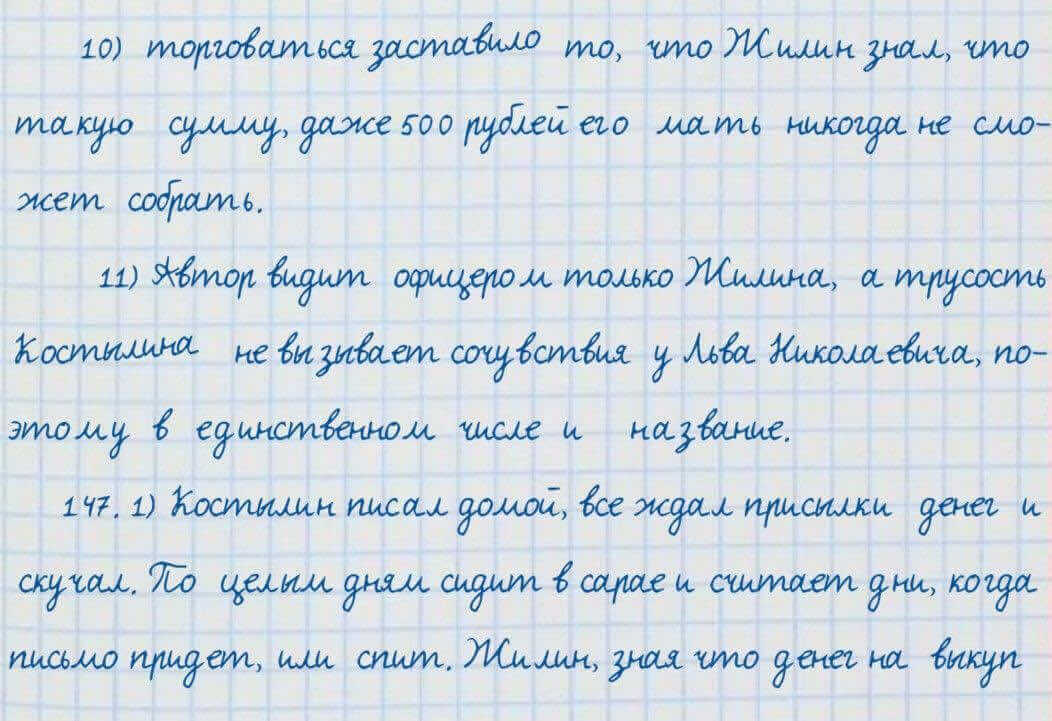 10) торговаться заставило то, что Жилин знал, что
такую сумму, даже 500 рублей его мать никогда не смо-
жет собрать.
11) Автор видит офицером только Жилина, а трусость
Костылина не вызывает сочувствия у Льва Николаевича, по-
этому в единственном числе и название.
147. 1) Костылин писал домой, все ждал присылки денег и
скучал. По целым дням сидит в сарае и считает дни, когда
письмо придет, или спит. Жилин, зная что денег на выкуп